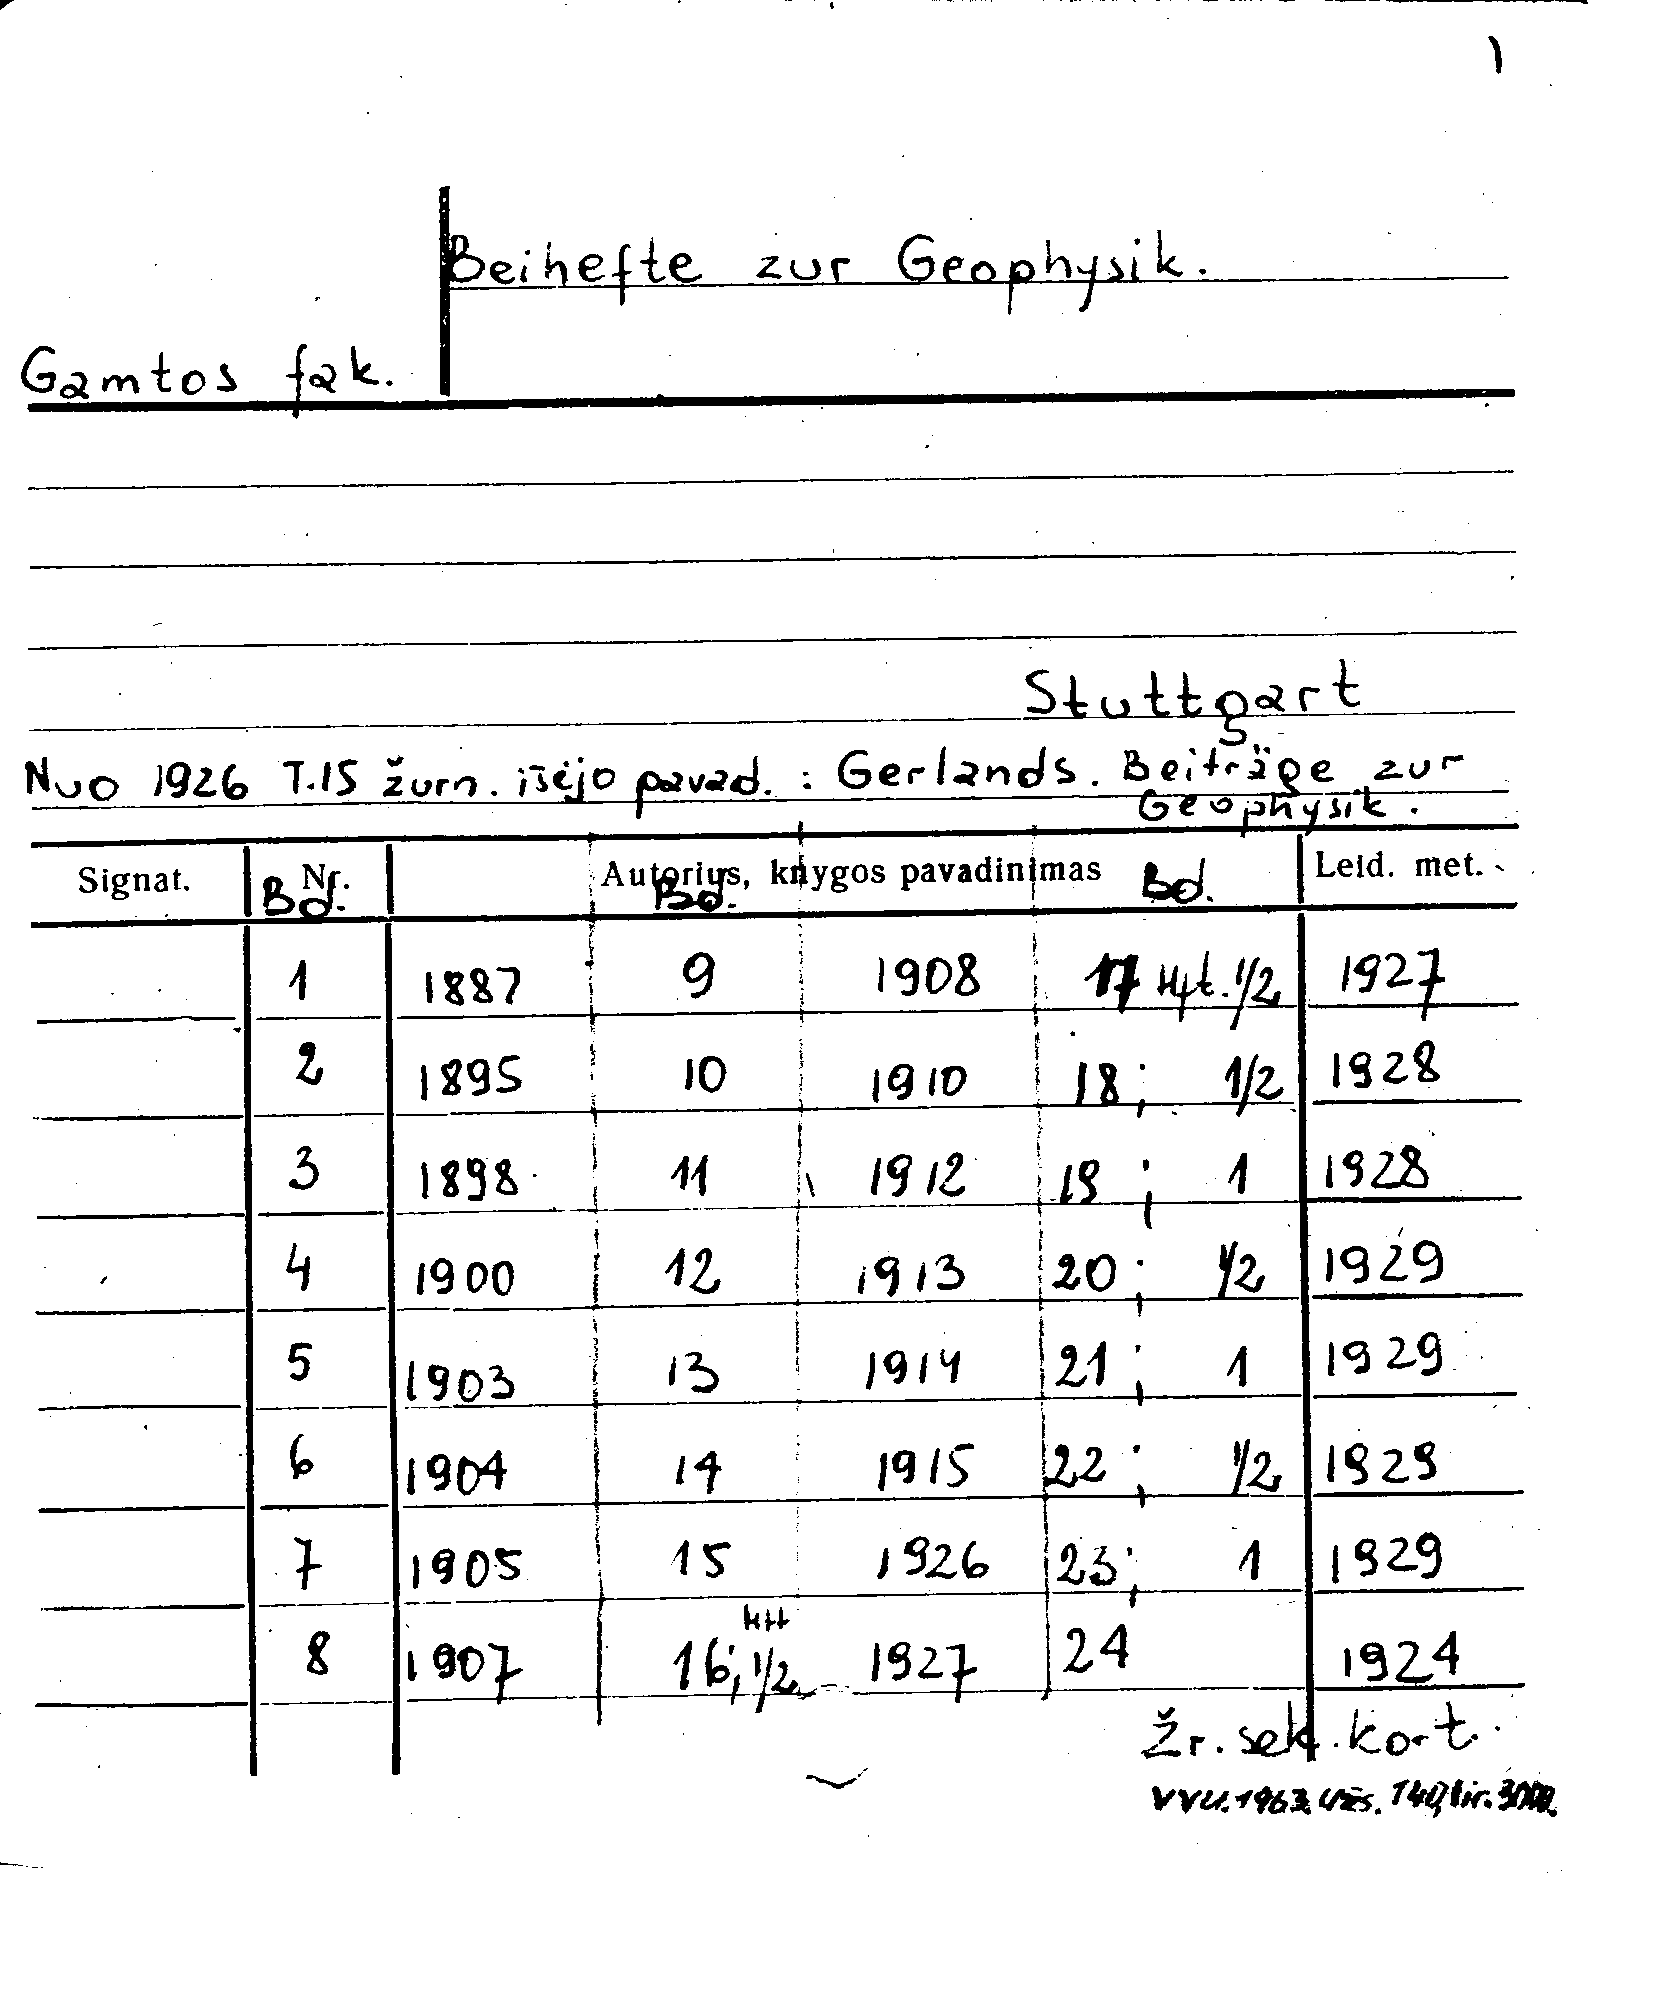 1
Beihefte zur Geophysik.
Gamtos fak.
Stuttgart
Nuo 1926 T.15 žurn. išėjo pavad. : Gerlands. Beiträge zur
Geophysik.
Signat. Nr. Autorius, knygos pavadinimas Leid. met.
Bd. Bd. Bd.
1 1887 9 1908 17 Hft. 1/2 1927
2 1895 10 1910 18; 1/2 1928
3 1898 11 1912 19; 1 1928
4 1900 12 1913 20; 1/2 1929
5 1903 13 1914 21; 1 1929
6 1904 14 1915 22; 1/2 1929
7 1905 15 1926 23; 1 1929
Hft
8 1907 16; 1/2 1927 24 1924
Žr. sek. kort.
VVU. 1963. Užs. 140, tir.